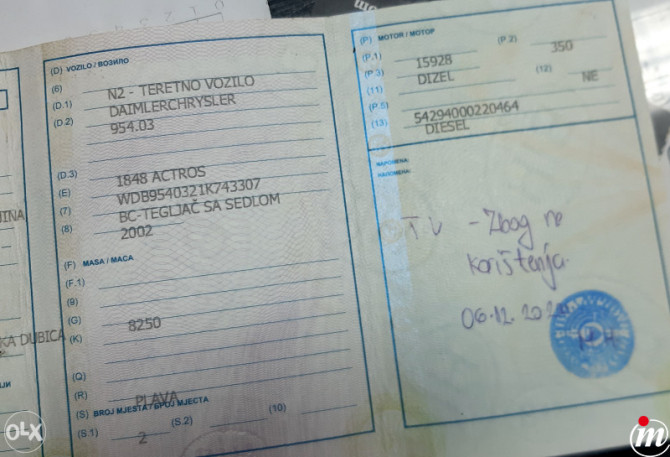 (D) VOZILO / ВОЗИЛО
(6) N2 - TERETNO VOZILO
(D.1) DAIMLERCHRYSLER
(D.2) 954.03
(D.3) 1848 ACTROS
(E) WDB9540321K743307
(7) BC-TEGLJAČ SA SEDLOM
(8) 2002
(F) MASA / МАСА
(F.1)
(9)
(G) 8250
(K)
(Q)
(R) PLAVA
(S) BROJ MJESTA / БРОЈ МЈЕСТА
(S.1) 2 (S.2) (10)
KA DUBICA
(P) MOTOR / МОТОР
(P.1) 15928 (P.2) 350
(P.3) DIZEL (12) NE
(11)
(P.5) 54294000220464
(13) DIESEL
NAPOMENA:
НАПОМЕНА:
- Zbog ne
korištenja.
06.12.
OLX
m